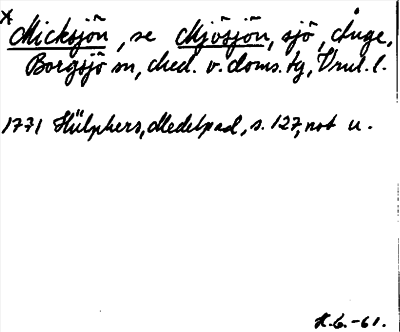 x
Micksjön, se Mjösjön, sjö, Ånge,
Borgsjö sn, Med. v. doms. tg, Vnrl. l.
1771 Hülphers, Medelpad, s. 127, not u.
H.G.-61.